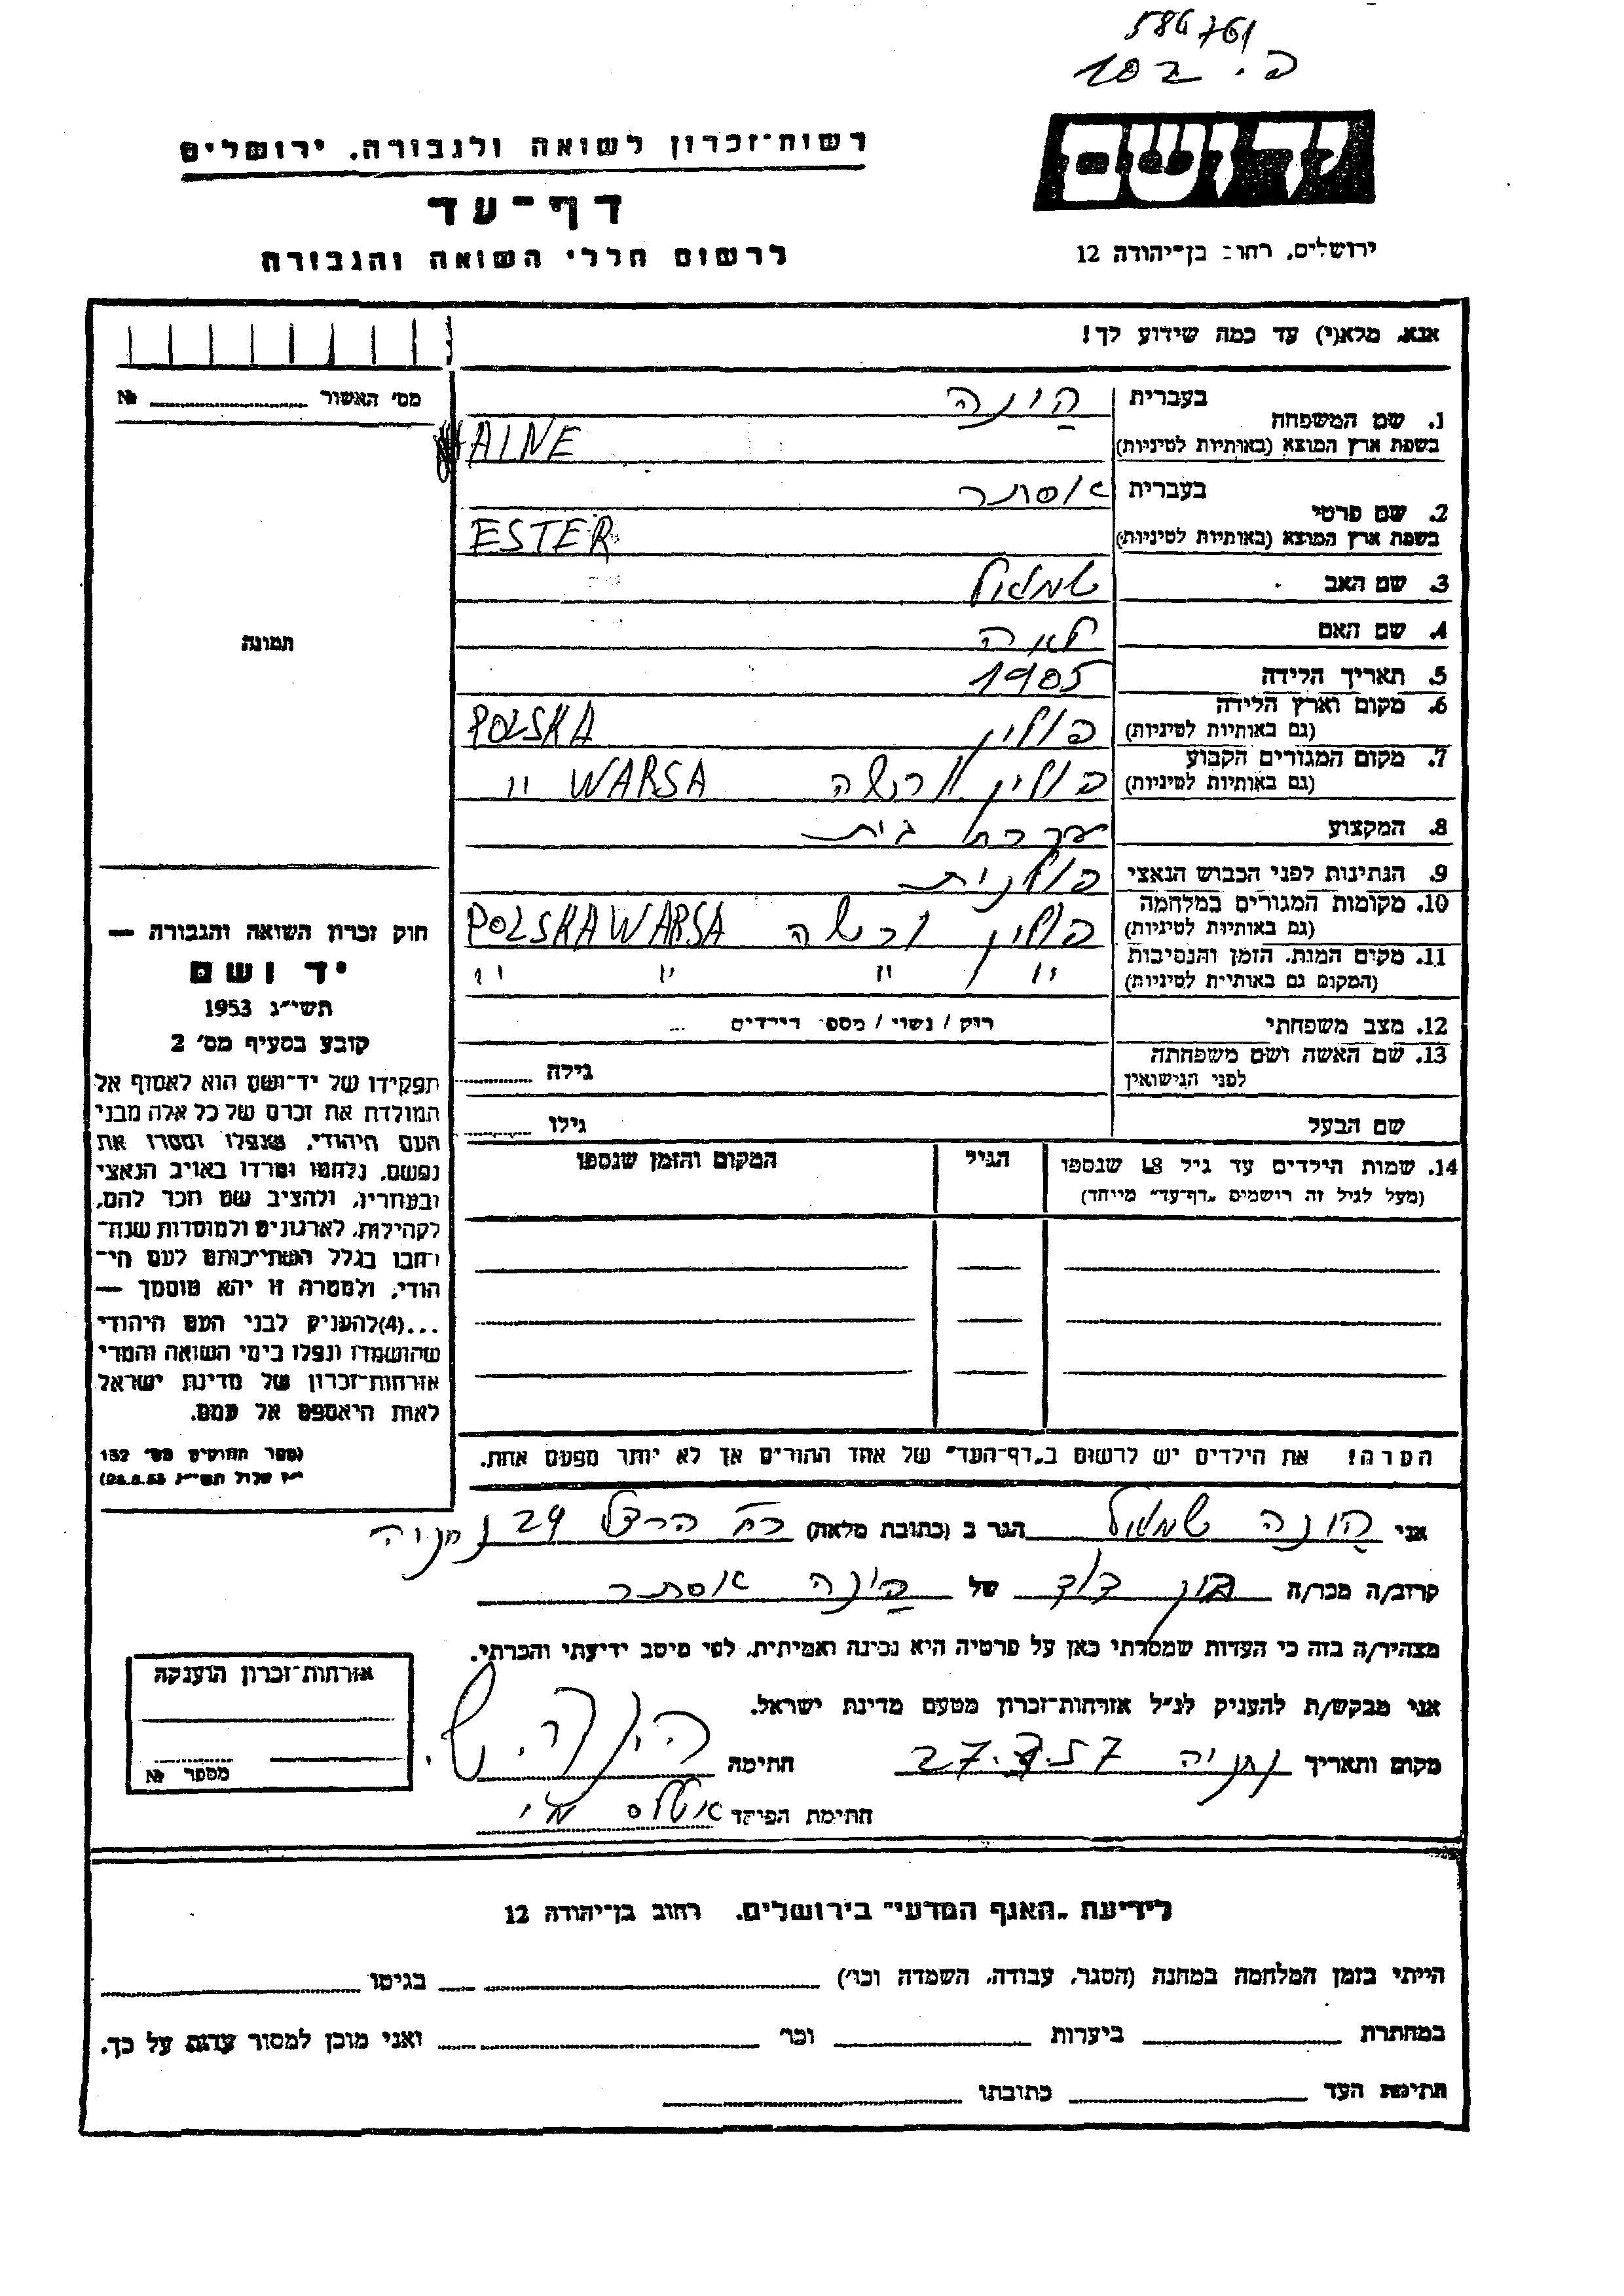 586761
פ. 102
רשות־זכרון לשואה ולגבורה. ירושלים
יד ושם
דף־עד
לרשום חללי השואה והגבורה
ירושלים, רחוב בן־יהודה 12
אנא, מלא(י) עד כמה שידוע לך!
מס׳ האשור № 
1. שם המשפחה
בעברית הונה
בשפת ארץ המוצא (באותיות לטיניות) AINE
2. שם פרטי
בעברית אסתר
בשפת ארץ המוצא (באותיות לטיניות) ESTER
3. שם האב שמואל
4. שם האם לאה
תמונה
5. תאריך הלידה 1905
6. מקום וארץ הלידה
(גם באותיות לטיניות) פולין POLSKA
7. מקום המגורים הקבוע
(גם באותיות לטיניות) פולין ורשה WARSA "
8. המקצוע עקרת בית
9. הנתינות לפני הכבוש הנאצי פולנית
10. מקומות המגורים במלחמה
(גם באותיות לטיניות) פולין ורשה POLSKA WARSA
11. מקום המות, הזמן והנסיבות
(המקום גם באותיות לטיניות) " " " "
12. מצב משפחתי רוק / נשוי / מספר הילדים
13. שם האשה ושם משפחתה
לפני הנישואין גילה
שם הבעל גילו
14. שמות הילדים עד גיל 18 שנספו
(מעל לגיל זה רושמים „דף־עד" מיוחד)
הגיל
המקום והזמן שנספו
חוק זכרון השואה והגבורה —
יד ושם
תשי״ג 1953
קובע בסעיף מס׳ 2
תפקידו של יד־ושם הוא לאסוף אל
המולדת את זכרם של כל אלה מבני
העם היהודי, שנפלו ומסרו את
נפשם, נלחמו ומרדו באויב הנאצי
ובעוזריו, ולהציב שם וזכר להם,
לקהילות, לארגונים ולמוסדות שנח־
רבו בגלל השתייכותם לעם הי־
הודי, ולמטרה זו יהא מוסמך —
...(4)להעניק לבני העם היהודי
שהושמדו ונפלו בימי השואה והמרי
אזרחות־זכרון של מדינת ישראל
לאות היאספם אל עמם.
(ספר החוקים מס׳ 132
י״ז אלול תשי״ג 28.8.53)
הערה! את הילדים יש לרשום ב„דף־העד" של אחד ההורים אך לא יותר מפעם אחת.
אני הונה שמואל הגר ב (כתובת מלאה) רח׳ הרצל 29 נתניה
קרוב/ה מכר/ה בן דוד של הונה אסתר
מצהיר/ה בזה כי העדות שמסרתי כאן על פרטיה היא נכונה ואמיתית, לפי מיטב ידיעתי והכרתי.
אני מבקש/ת להעניק לנ״ל אזרחות־זכרון מטעם מדינת ישראל.
מקום ותאריך נתניה 27.7.57 חתימה
חתימת הפוקד
אזרחות־זכרון הוענקה
מספר №
לידיעת „האגף המדעי" בירושלים. רחוב בן־יהודה 12
הייתי בזמן המלחמה במחנה (הסגר, עבודה, השמדה וכו׳) בגיטו
במחתרת ביערות וכו׳ ואני מוכן למסור עדות על כך.
חתימת העד כתובתו